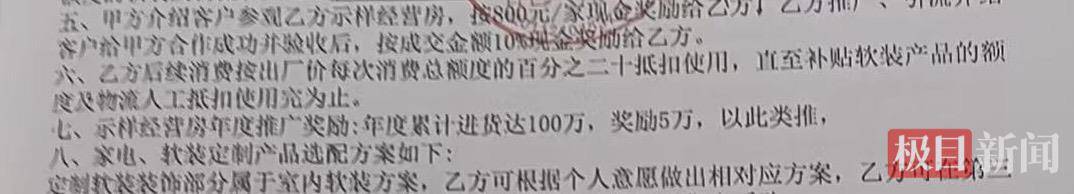 五、甲方介绍客户参观乙方示样经营房，按800元/家现金奖励给乙方；乙方推广、引流介绍
客户给甲方合作成功并验收后，按成交金额10%现金奖励给乙方。
六、乙方后续消费按出厂价每次消费总额度的百分之二十抵扣使用，直至补贴软装产品的额
度及物流人工抵扣使用完为止。
七、示样经营房年度推广奖励：年度累计进货达100万，奖励5万，以此类推，
八、家电、软装定制产品选配方案如下：
定制软装装饰部分属于室内软装方案，乙方可根据个人意愿做出相对应方案，乙方可在第三
极目新闻